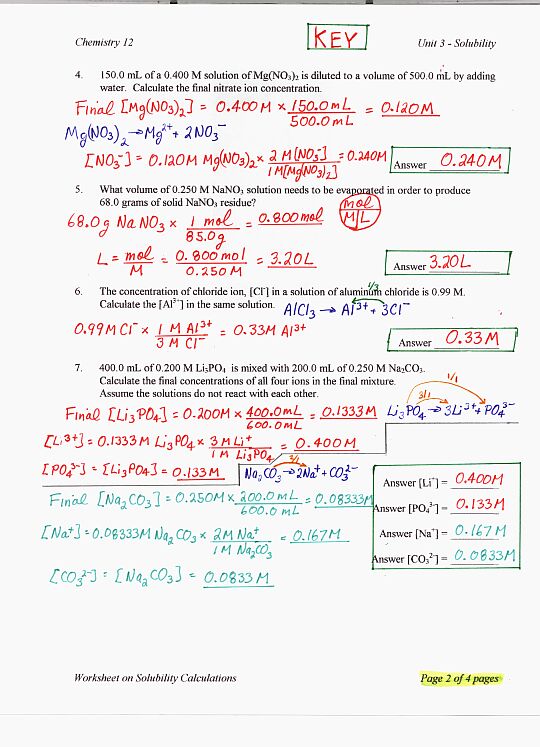 Chemistry 12
KEY
Unit 3 - Solubility
4. 150.0 mL of a 0.400 M solution of Mg(NO₃)₂ is diluted to a volume of 500.0 mL by adding
water. Calculate the final nitrate ion concentration.
Final [Mg(NO₃)₂] = 0.400M × 150.0mL/500.0mL = 0.120M
Mg(NO₃)₂ → Mg²⁺ + 2NO₃⁻
[NO₃⁻] = 0.120M Mg(NO₃)₂ × 2 M[NO₃⁻]/1M[Mg(NO₃)₂] = 0.240M
Answer 0.240M
5. What volume of 0.250 M NaNO₃ solution needs to be evaporated in order to produce
68.0 grams of solid NaNO₃ residue?
mol
M|L
68.0g NaNO₃ × 1 mol/85.0g = 0.800mol
L = mol/M = 0.800mol/0.250M = 3.20L
Answer 3.20L
6. The concentration of chloride ion, [Cl⁻] in a solution of aluminum chloride is 0.99 M.
Calculate the [Al³⁺] in the same solution.
1/3
AlCl₃ → Al³⁺ + 3Cl⁻
0.99M Cl⁻ × 1 M Al³⁺/3 M Cl⁻ = 0.33M Al³⁺
Answer 0.33M
7. 400.0 mL of 0.200 M Li₃PO₄ is mixed with 200.0 mL of 0.250 M Na₂CO₃.
Calculate the final concentrations of all four ions in the final mixture.
Assume the solutions do not react with each other.
1/1
3/1
Final [Li₃PO₄] = 0.200M × 400.0mL/600.0mL = 0.1333M
Li₃PO₄ → 3Li³⁺ + PO₄³⁻
[Li³⁺] = 0.1333M Li₃PO₄ × 3 M Li⁺/1M Li₃PO₄ = 0.400M
[PO₄³⁻] = [Li₃PO₄] = 0.133M
2/1
Na₂CO₃ → 2Na⁺ + CO₃²⁻
Final [Na₂CO₃] = 0.250M × 200.0mL/600.0mL = 0.08333M
[Na⁺] = 0.08333M Na₂CO₃ × 2M Na⁺/1M Na₂CO₃ = 0.167M
[CO₃²⁻] = [Na₂CO₃] = 0.0833M
Answer [Li⁺] = 0.400M
Answer [PO₄³⁻] = 0.133M
Answer [Na⁺] = 0.167M
Answer [CO₃²⁻] = 0.0833M
Worksheet on Solubility Calculations
Page 2 of 4 pages